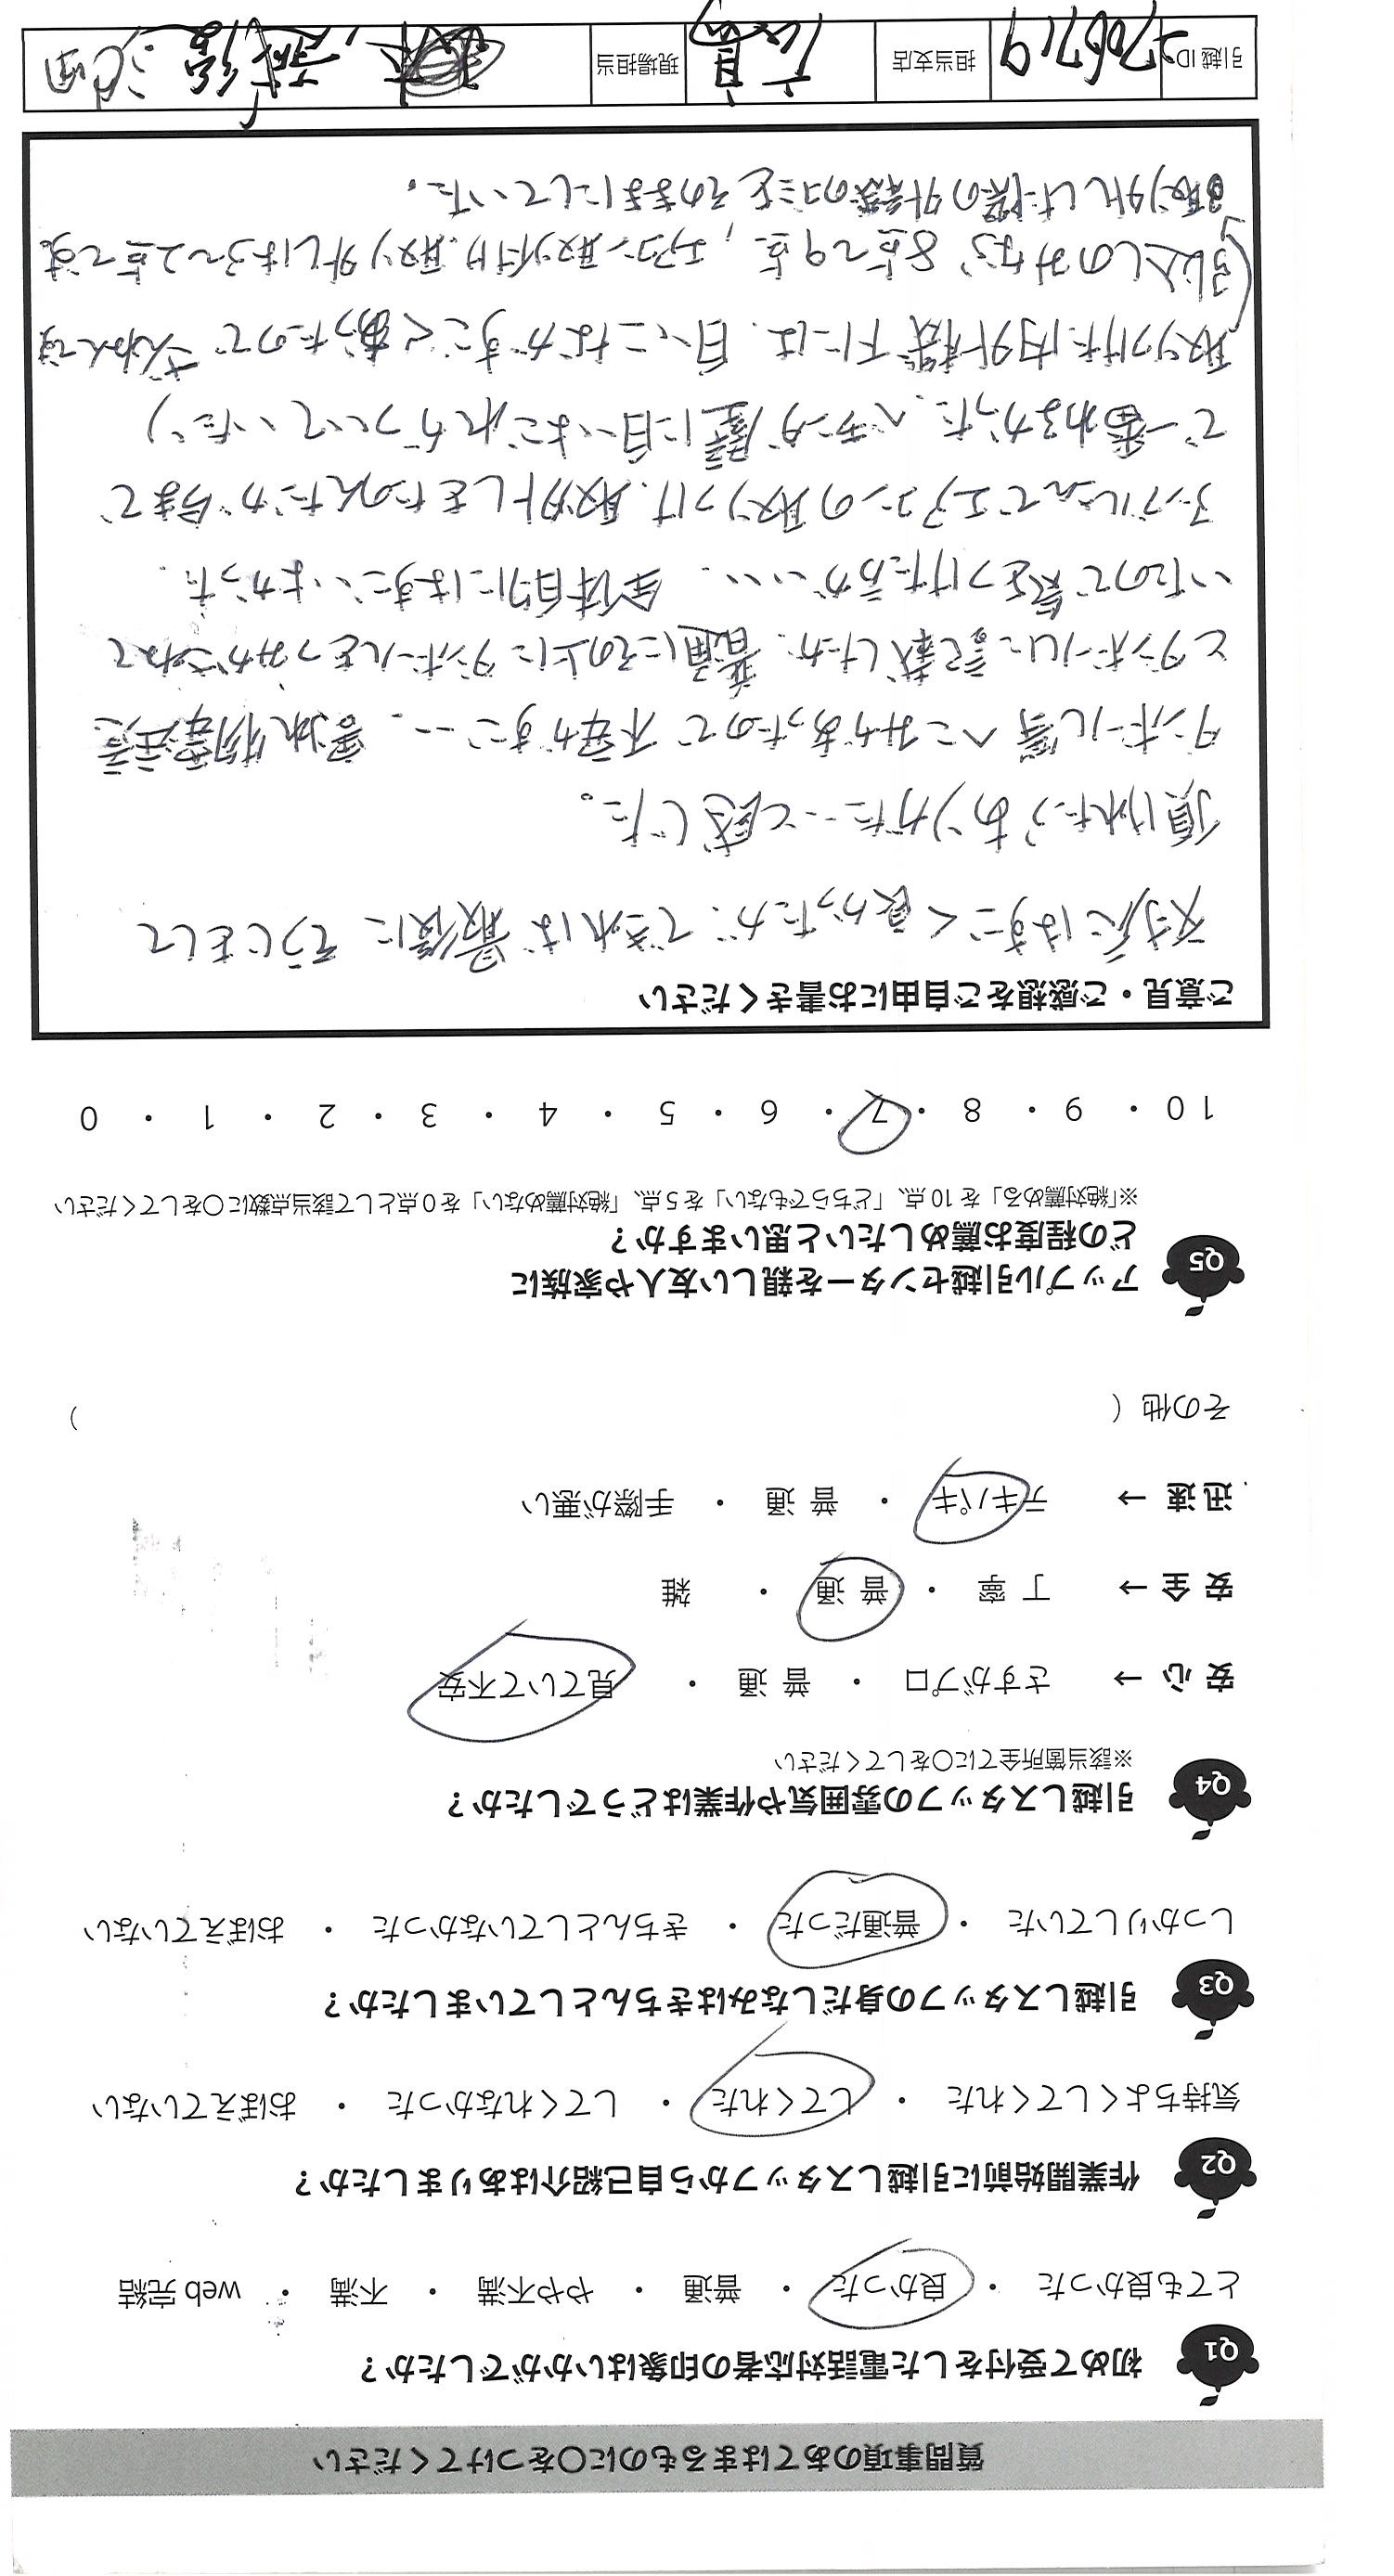 質問事項のあてはまるものに〇をつけてください
Q1 初めて受付をした電話対応者の印象はいかがでしたか？
とても良かった ・ 良かった ・ 普通 ・ やや不満 ・ 不満 ・ web 完結
Q2 作業開始前に引越しスタッフから自己紹介はありましたか？
気持ちよくしてくれた ・ してくれた ・ してくれなかった ・ おぼえていない
Q3 引越しスタッフの身だしなみはきちんとしていましたか？
しっかりしていた ・ 普通だった ・ きちんとしていなかった ・ おぼえていない
Q4 引越しスタッフの雰囲気や作業はどうでしたか？
※該当箇所全てに〇をしてください
安 心 → さすがプロ ・ 普 通 ・ 見ていて不安
安 全 → 丁 寧 ・ 普 通 ・ 雑
迅 速 → テキパキ ・ 普 通 ・ 手際が悪い
その他 （ ）
Q5 アップル引越センターを親しい友人や家族に
どの程度お薦めしたいと思いますか？
※「絶対薦める」を 10 点、「どちらでもない」を 5 点、「絶対薦めない」を 0 点として該当点数に〇をしてください
10 ・ 9 ・ 8 ・ 7 ・ 6 ・ 5 ・ 4 ・ 3 ・ 2 ・ 1 ・ 0
ご意見・ご感想をご自由にお書きください
対応はすごく良かったが、できれば最後に そうじをして
頂ければありがたいと感じた。
ダンボール等へこみがあったので 不安がすごい、、割れ物注意
とダンボールに記載したが、普通にその上にダンボールをつみかさねて
いたので気をつけた方がいい、、 全体的にはすごいよかった.
アップルさんでエアコンの取りつけ、取外しをたのんだが今まで
で一番わるかった、ベランダ壁に白いよごれがついていた)
取りつけた内外機 下には、白いこながすごくあったので ざんねんです
引越しのみなら 8点〜9点, エアコン取り付け、取り外しは3〜2点です
取り外した際の外機のゴミをそのままにしていた。
引越 ID 2706719 担当支店 現場担当